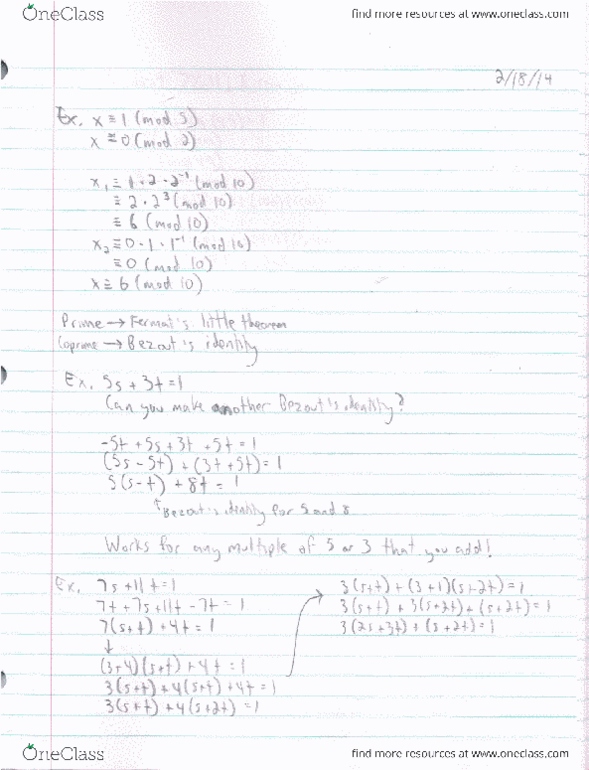 OneClass
find more resources at www.oneclass.com
2/18/14
Ex. x ≡ 1 (mod 5)
x ≡ 0 (mod 2)
x₁ ≡ 1 · 2 · 2⁻¹ (mod 10)
≡ 2 · 2³ (mod 10)
≡ 6 (mod 10)
x₂ ≡ 0 · 1 · 1⁻¹ (mod 10)
≡ 0 (mod 10)
x ≡ 6 (mod 10)
Prime → Fermat's little theorem
Coprime → Bezout's identity
Ex. 5s + 3t = 1
Can you make another Bezout's identity?
-5t + 5s + 3t + 5t = 1
(5s - 5t) + (3t + 5t) = 1
5(s - t) + 8t = 1
↑ Bezout's identity for 5 and 8
Works for any multiple of 5 or 3 that you add!
Ex. 7s + 11t = 1
7t + 7s + 11t - 7t = 1
7(s+t) + 4t = 1
↓
(3+4)(s+t) + 4t = 1
3(s+t) + 4(s+t) + 4t = 1
3(s+t) + 4(s+2t) = 1
3(s+t) + (3+1)(s+2t) = 1
3(s+t) + 3(s+2t) + (s+2t) = 1
3(2s+3t) + (s+2t) = 1
OneClass
find more resources at www.oneclass.com